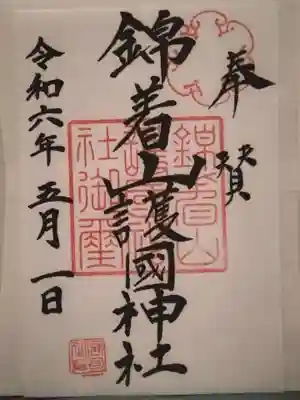 奉賛
錦着山護國神社
令和六年五月一日
錦着山
護國神
社御璽